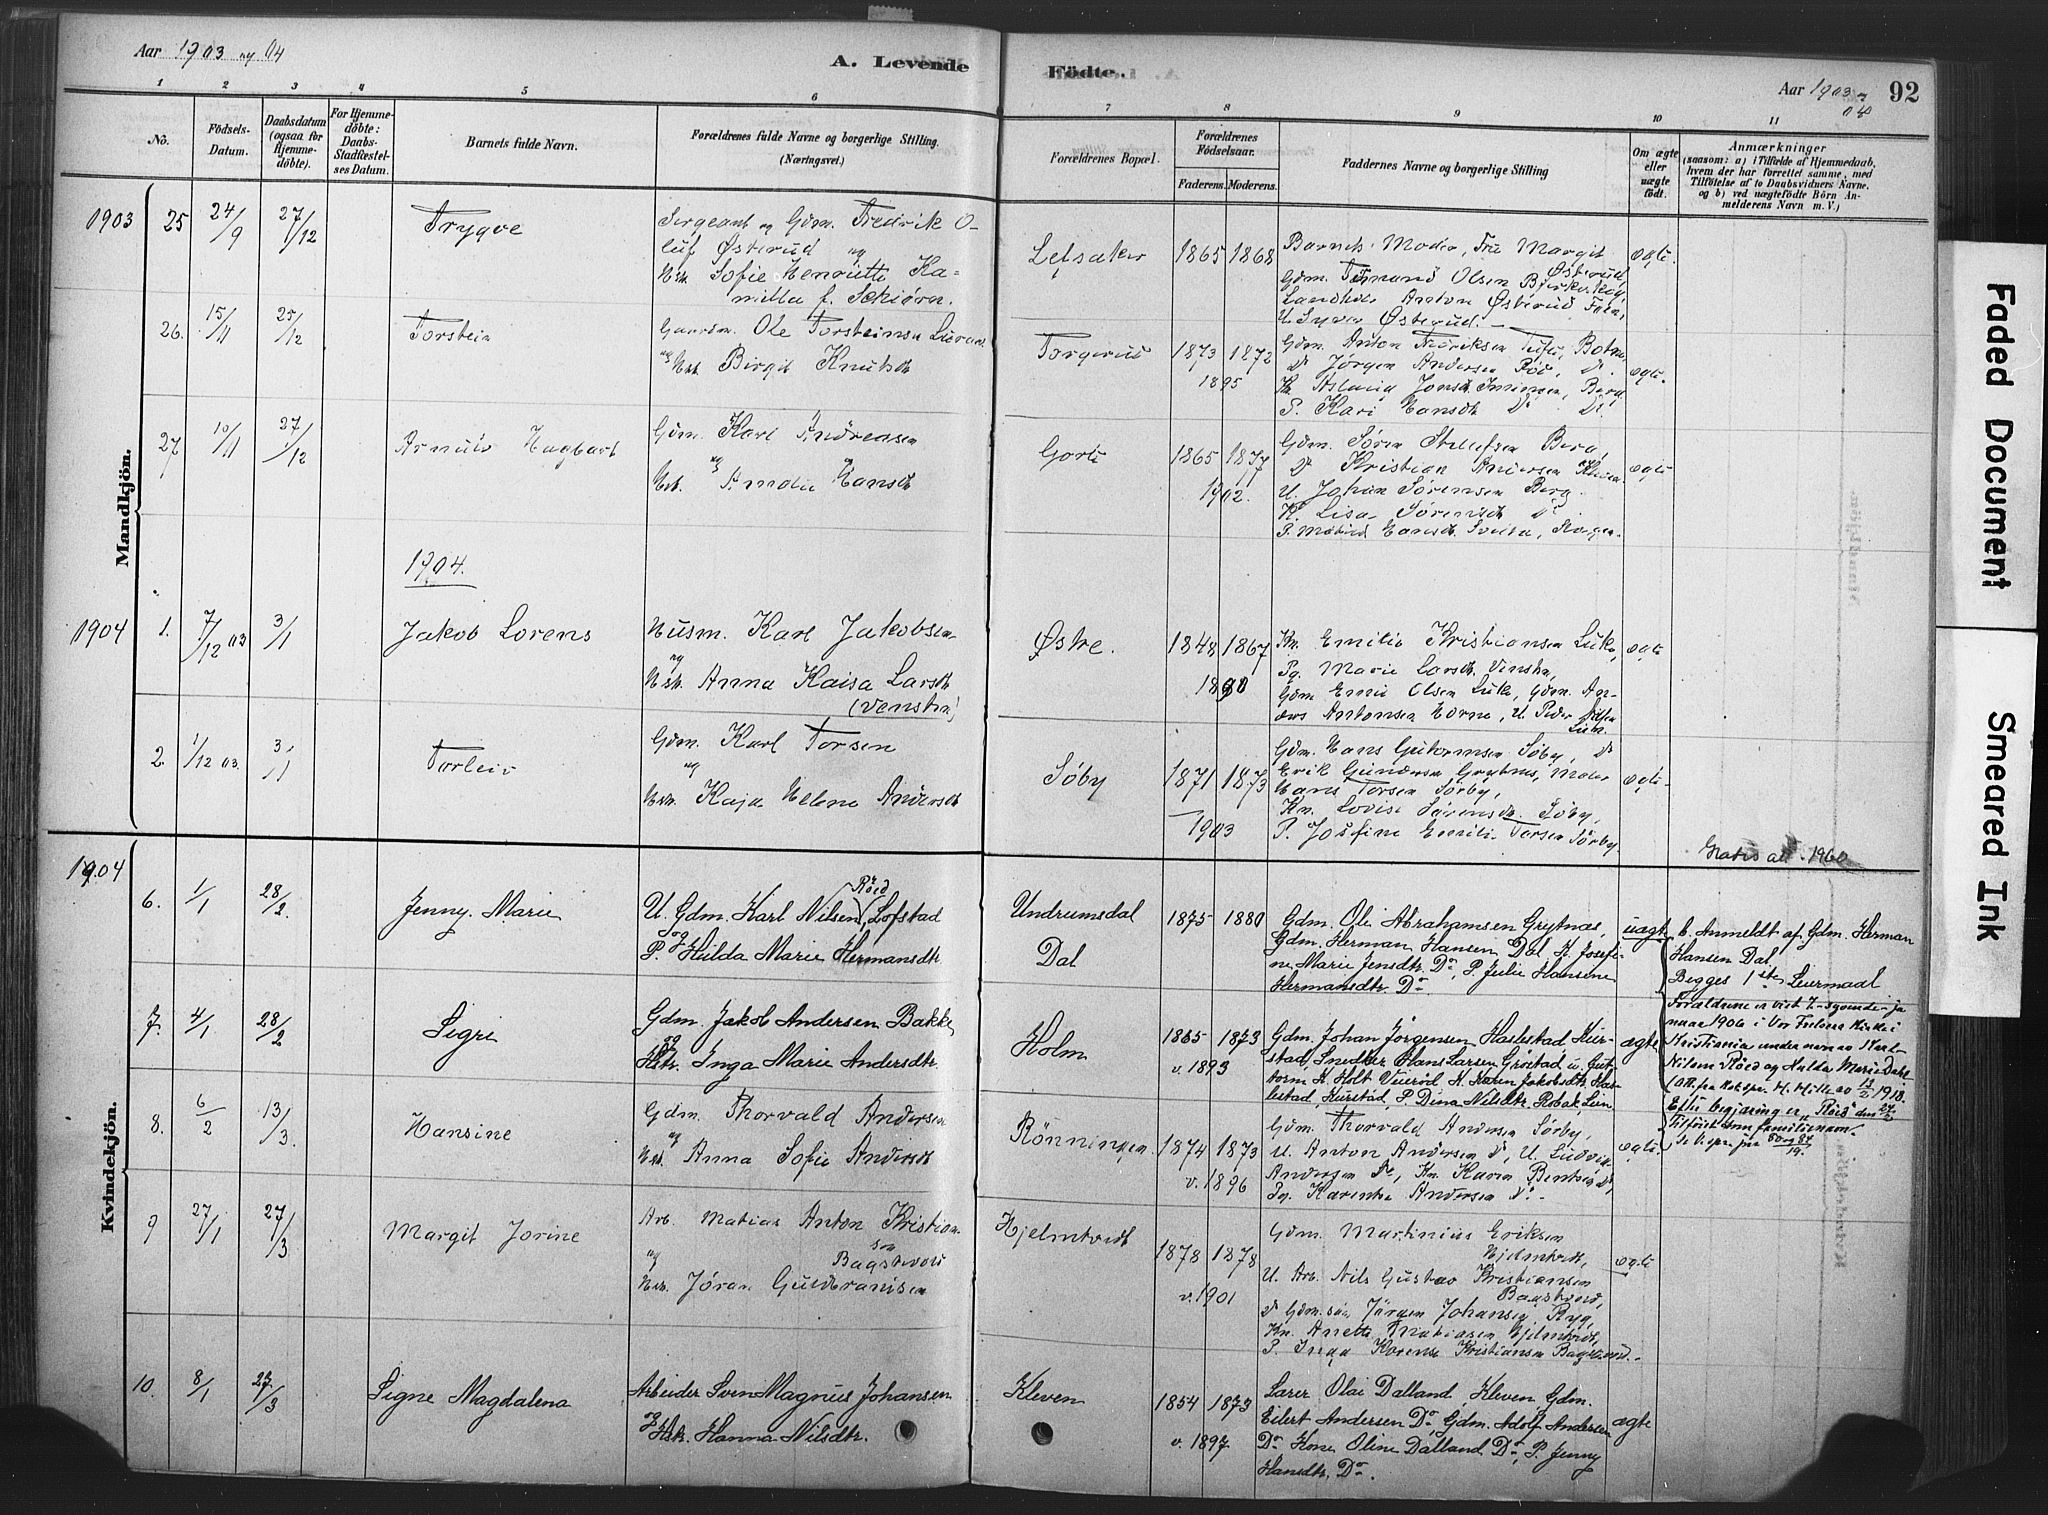 Aar 1903 og 04
A. Levende
Födte.
Aar 1903 og 04
92
1 2 3 4 5 6 7 8 9 10 11
No.
Födsels-
Datum.
Daabsdatum
(ogsaa for
Hjemme-
döbte).
For Hjemme-
döbte:
Daabs-
Stadfæstel-
ses Datum.
Barnets fulde Navn.
Forældrenes fulde Navne og borgerlige Stilling.
(Næringsvei.)
Forældrenes Bopæl.
Forældrenes
Födselsaar.
Faderens. Moderens.
Faddernes Navne og borgerlige Stilling
Om ægte
eller
uægte
födt.
Anmærkninger
(saasom: a) i Tilfælde af Hjemmedaab,
hvem der har forrettet samme, med
Tilföielse af to Daabsvidners Navne,
og b) ved uægtefödte Börn An-
melderens Navn m. V.)
Mandkjön.
1903
25 24/9 27/12 Trygve
Sergeant og Gdm. Fredrik O-
luf Østerud og
Hstr. Sofie Henriette Ka-
milla f. Schiørn.
Lefsaker 1865 1868
Barnets Moder, Fru Margit
Østerud,
Olsen
Anton Østerud
Østerud.
ægte.
26. 15/11 25/12 Torstein
Gaardm. Ole Torsteinsen
og Hstr. Birgit Knutsdt.
Torgerud 1873 1872
1895
Gdm. Anton Fredriksen
Do Jørgen Andersen Röd, Do.
Aslaug Jonsdt.
P. Kari Hansdt. Do Do.
ægte.
27 10/11 27/12 Arnulv Hagbart
Gdm. Karl Andreasen
og
Hstr. Amalie Hansdt.
1865 1877
1902.
Gdm. Sören Berg,
Do Kristian Andersen
U. Johan Sørensen Berg.
K. Lisa Sørensdt. Do
ægte
1904.
1904
1. 7/12 03 3/1 Jakob Lorens
Husm. Karl Jakobsen
og
Hstr. Anna Kaisa Larsdt.
Østre. 1848 1867
1890
Kn. Emilie Kristiansen
Pg. Marie Larsdt.
Gdm. Olsen Gdm. An-
ders Antonsen Horne, U. Peder
ægte
2. 1/12 03. 3/1 Torleiv
Gdm. Karl Torsen
og
Hstr. Kaja Helene Andersdt.
Söby 1871 1873
1903
Gdm. Hans Guttormsen Söby, Do
Erik Gundersen Grytnes,
Hans Torsen Sörby,
Kn. Lovise Sørensdt. Söby,
P. Josefine Emilie Torsen Sörby.
ægte.
1960
Kvindekjön.
1904
6. 1/1 28/2. Jenny Marie
Röed
U. Gdm. Karl Nilsen Lofstad
og
P. Hulda Marie Hermansdtr.
Undrumsdal
Dal
1875 1880
Gdm. Ole Abrahamsen Grytnæs,
Gdm. Herman Hansen Dal, K. Josefi-
ne Marie Jensdtr. Do, P. Julie Hansine
Hermansdtr. Do
uægte
b. Anmeldt af Gdm. Herman
Hansen Dal.
Begges 1ste Leiermaal
Forældrene er viet 7-syvende-ja
nuar 1906 i Vor Frelsers Kirke i
Kristiania under navn av Karl
Nilsen Röed og Hulda Marie Dahl
1918.
Efter begjæring er "Röed" den
Tilföiet som familienavn.
7. 4/1 28/2 Sigri
Gdm. Jakob Andersen Bakke
og
Hstr. Inga Marie Andersdtr.
Holm 1865 1873
v. 1893
Gdm. Johan Jörgensen Haslestad Hur-
stad, Snedker Hans Larsen Gröstad, U. Gut-
torm K. Holt Vueröd, K. Karen Jakobsdtr. Has-
lestad, Hurstad, P. Dina Nilsdtr. Robak, Lien
ægte
8. 6/2 13/3. Hansine
Gdm. Thorvald Andersen
og
Hstr. Anna Sofie Andersdt.
Rönningen 1874 1873
v. 1896
Gdm. Thorvald Andersen Sörby,
U. Anton Andersen Do, U. Ludvik
Andersen Do, Kn. Karen Bentsen Do,
Pg. Karinthe Andersen Do.
ægte.
9 27/1 27/3 Margit Jorine
Arb. Matias Anton Kristian-
sen
og Bagstevold
Hstr. Jöran Guldbrandsen
Hjelmtvedt 1878 1878
v. 1901
Gdm. Martinius Eriksen
Hjelmtvedt,
U. Arb. Nils Gustav Kristiansen
Do Gdm.søn Jörgen Johansen Ryg,
Kn. Anette Mathiasen Hjelmtvedt,
P. Inga Korense Kristiansen
ægte
10. 8/1 27/3 Signe Magdalena
Arbeider Sven Magnus Johansen
og
Hstr. Hanna Nilsdtr.
Kleven 1854 1873
v. 1897
Lærer Olai Dalland, Kleven, Gdm.
Eilert Andersen Do, Gdm. Adolf Andersen
Do, Kone Oline Dalland Do, P. Jenny
Hansdtr. Do.
ægte
Faded Document
Smeared Ink